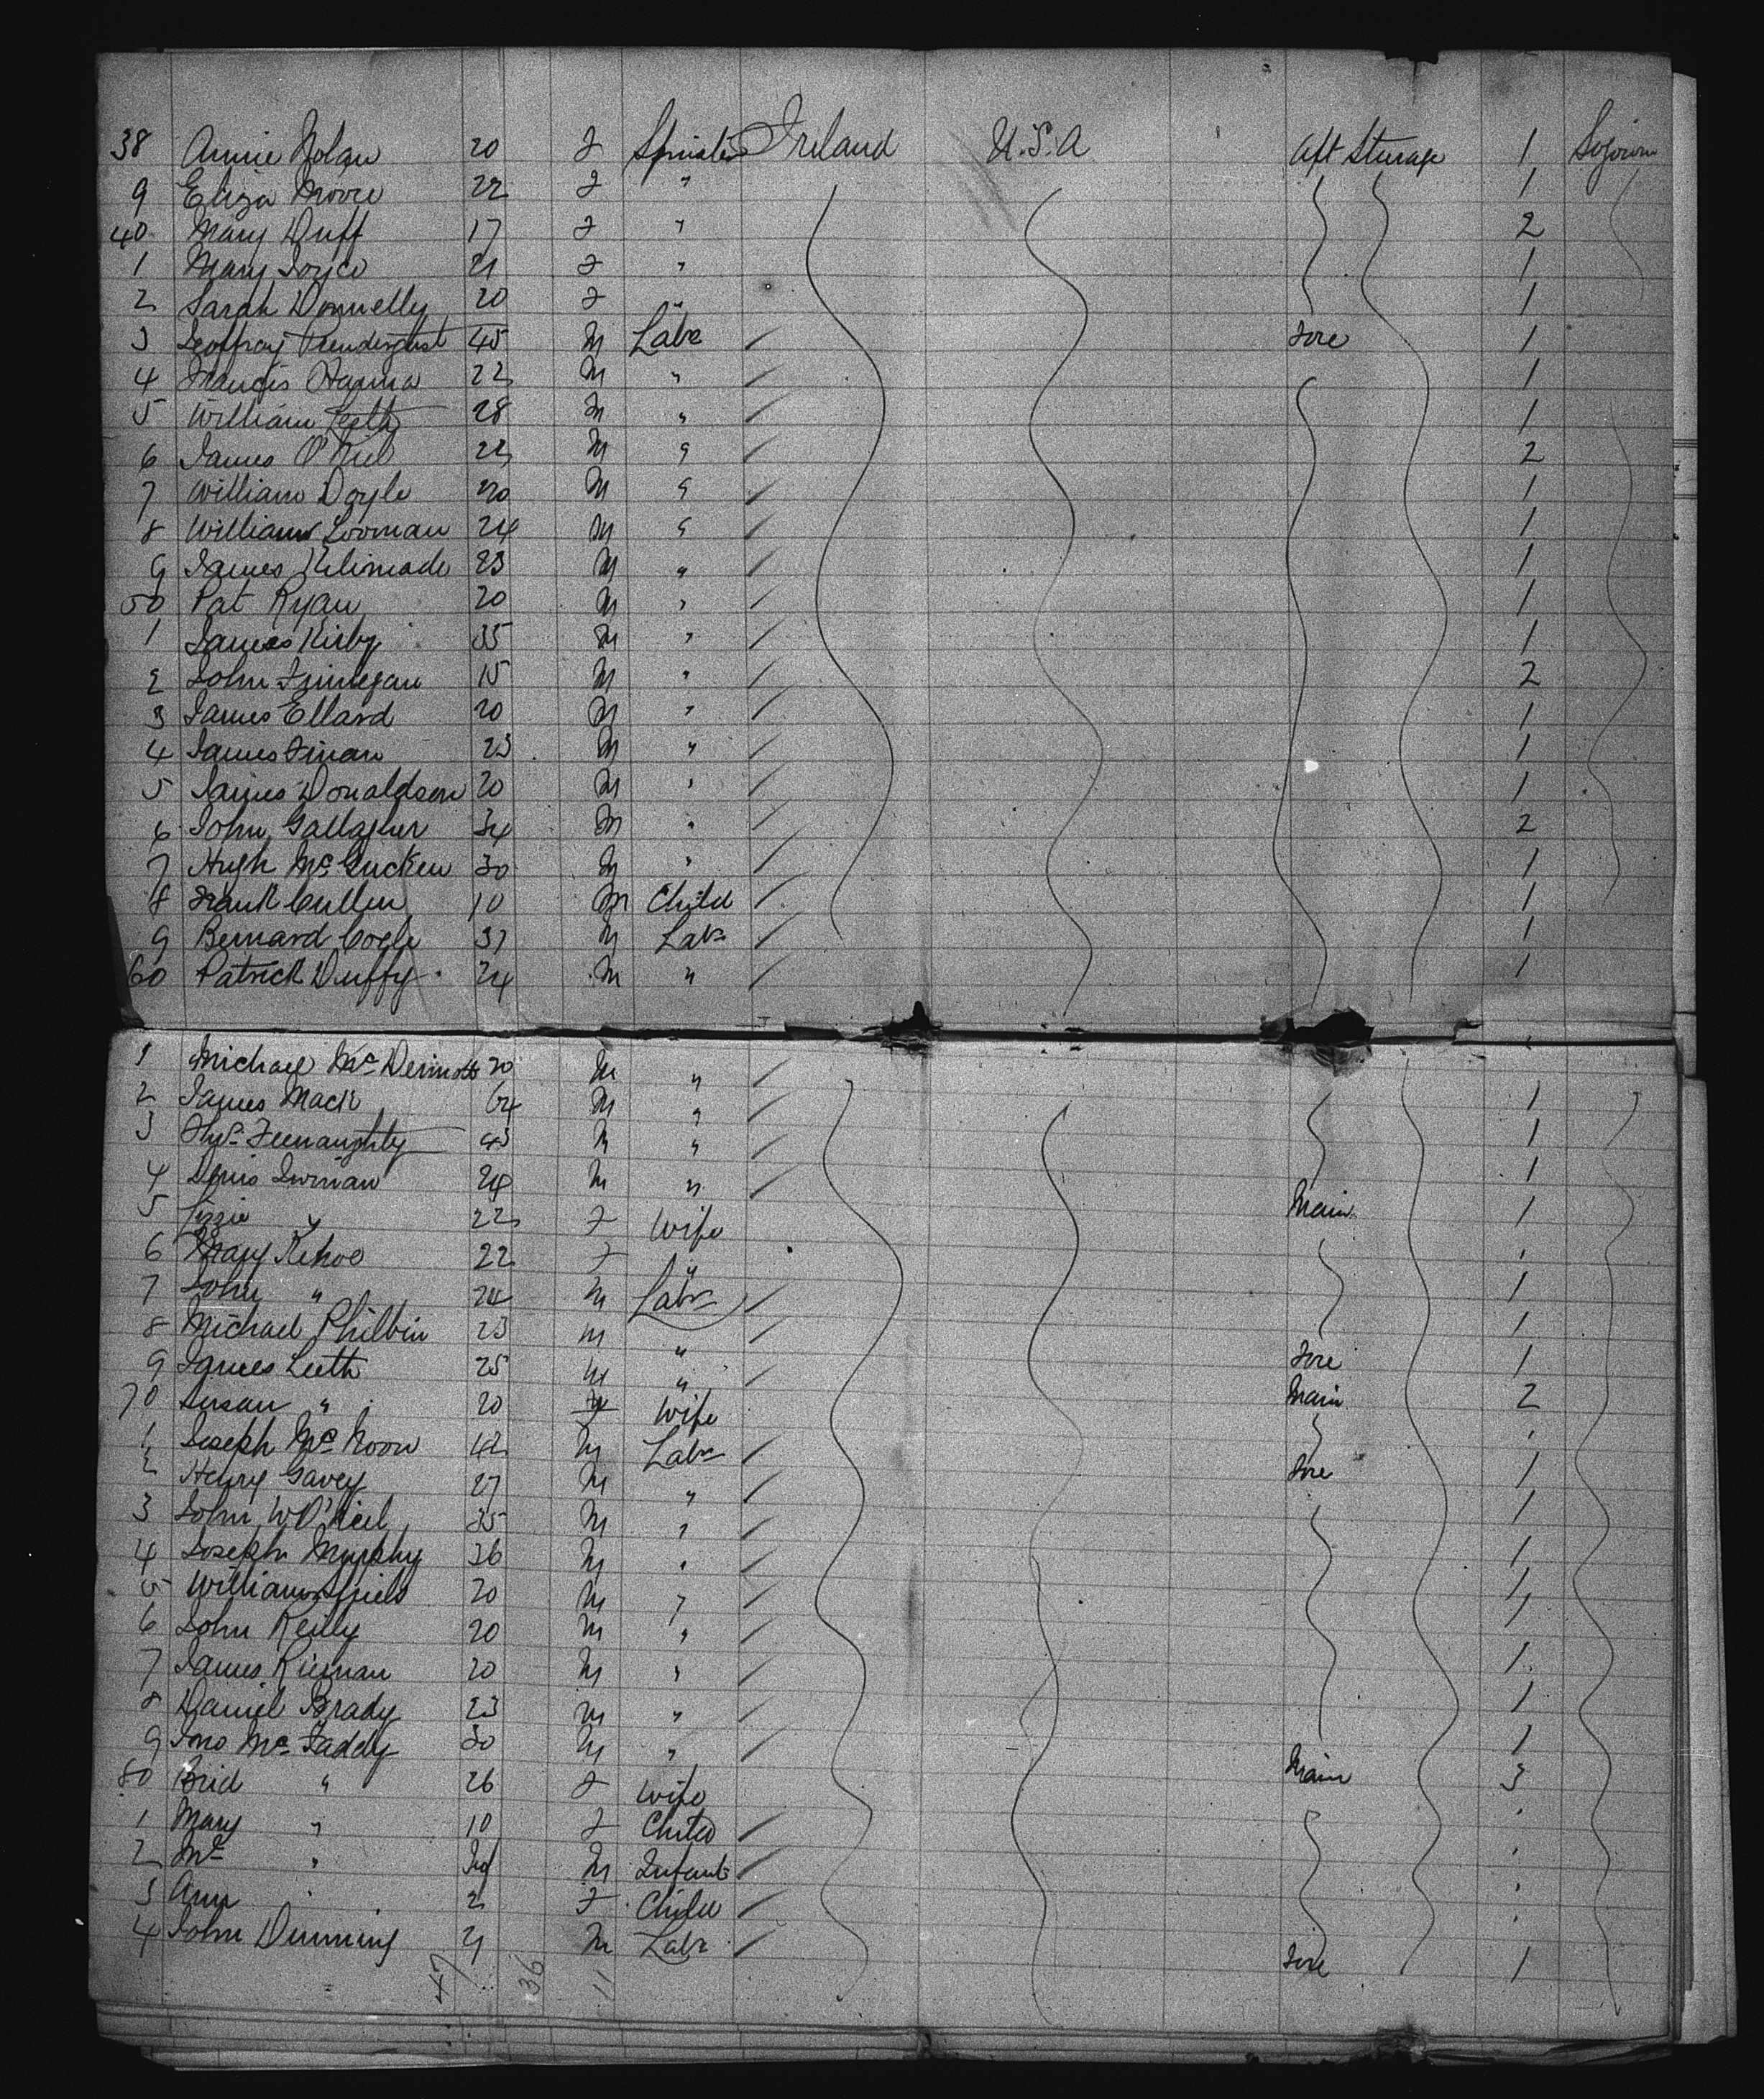 38 Annie Nolan 20 F Spinster Ireland U.S.A Aft Sturage 1 Sojourn
9 Eliza Moore 22 F " 1
40 Mary Duff 17 F " 2
1 Mary Joyce 21 F " 1
2 Sarah Donnelly 20 F " 1
3 Geoffray Prendergast 45 M Labr Fore 1
4 Francis Hanna 22 M " 1
5 William Leith 28 M " 1
6 James O'Niel 22 M " 2
7 William Doyle 20 M " 1
8 William Looman 24 M " 1
9 James 23 M " 1
50 Pat Ryan 20 M " 1
1 James Kirby 35 M " 1
2 John Finnegan 15 M " 2
3 James Ellard 20 M " 1
4 James Finan 23 M " 1
5 James Donaldson 20 M " 1
6 John Gallagher 34 M " 2
7 Hugh Mc Gucken 30 M " 1
8 Frank Cullen 10 M Child 1
9 Bernard Cogle 37 M Labr 1
60 Patrick Duffy 24 M " 1
1 Michael Mc Dermott 20 M "
2 James Mack 64 M " 1
3 Thos Feenaughty 43 M " 1
4 Denis 24 M " 1
5 Lizzie " 22 F Wife Main 1
6 Mary Kehoe 22 F "
7 John " 24 M Labr 1
8 Michael Philbin 23 M " 1
9 James Leith 25 M " Fore 1
70 Susan " 20 F Wife Main 2
1 Joseph Mc Noon 42 M Labr
2 Henry Gavey 27 M " Fore 1
3 John W O'Neil 35 M " 1
4 Joseph Murphy 36 M " 1
5 William 20 M " 1
6 John Reilly 20 M " 1
7 James Kiernan 20 M " 1
8 Daniel Brady 23 M " 1
9 Jno Mc Faddy 30 M " 1
80 Brid " 26 F Wife Main 3
1 Mary " 10 F Child
2 Ml " Inf M Infant
3 Ann " 2 F Child
4 John Dunning 21 M Labr Fore 1
47 36 11